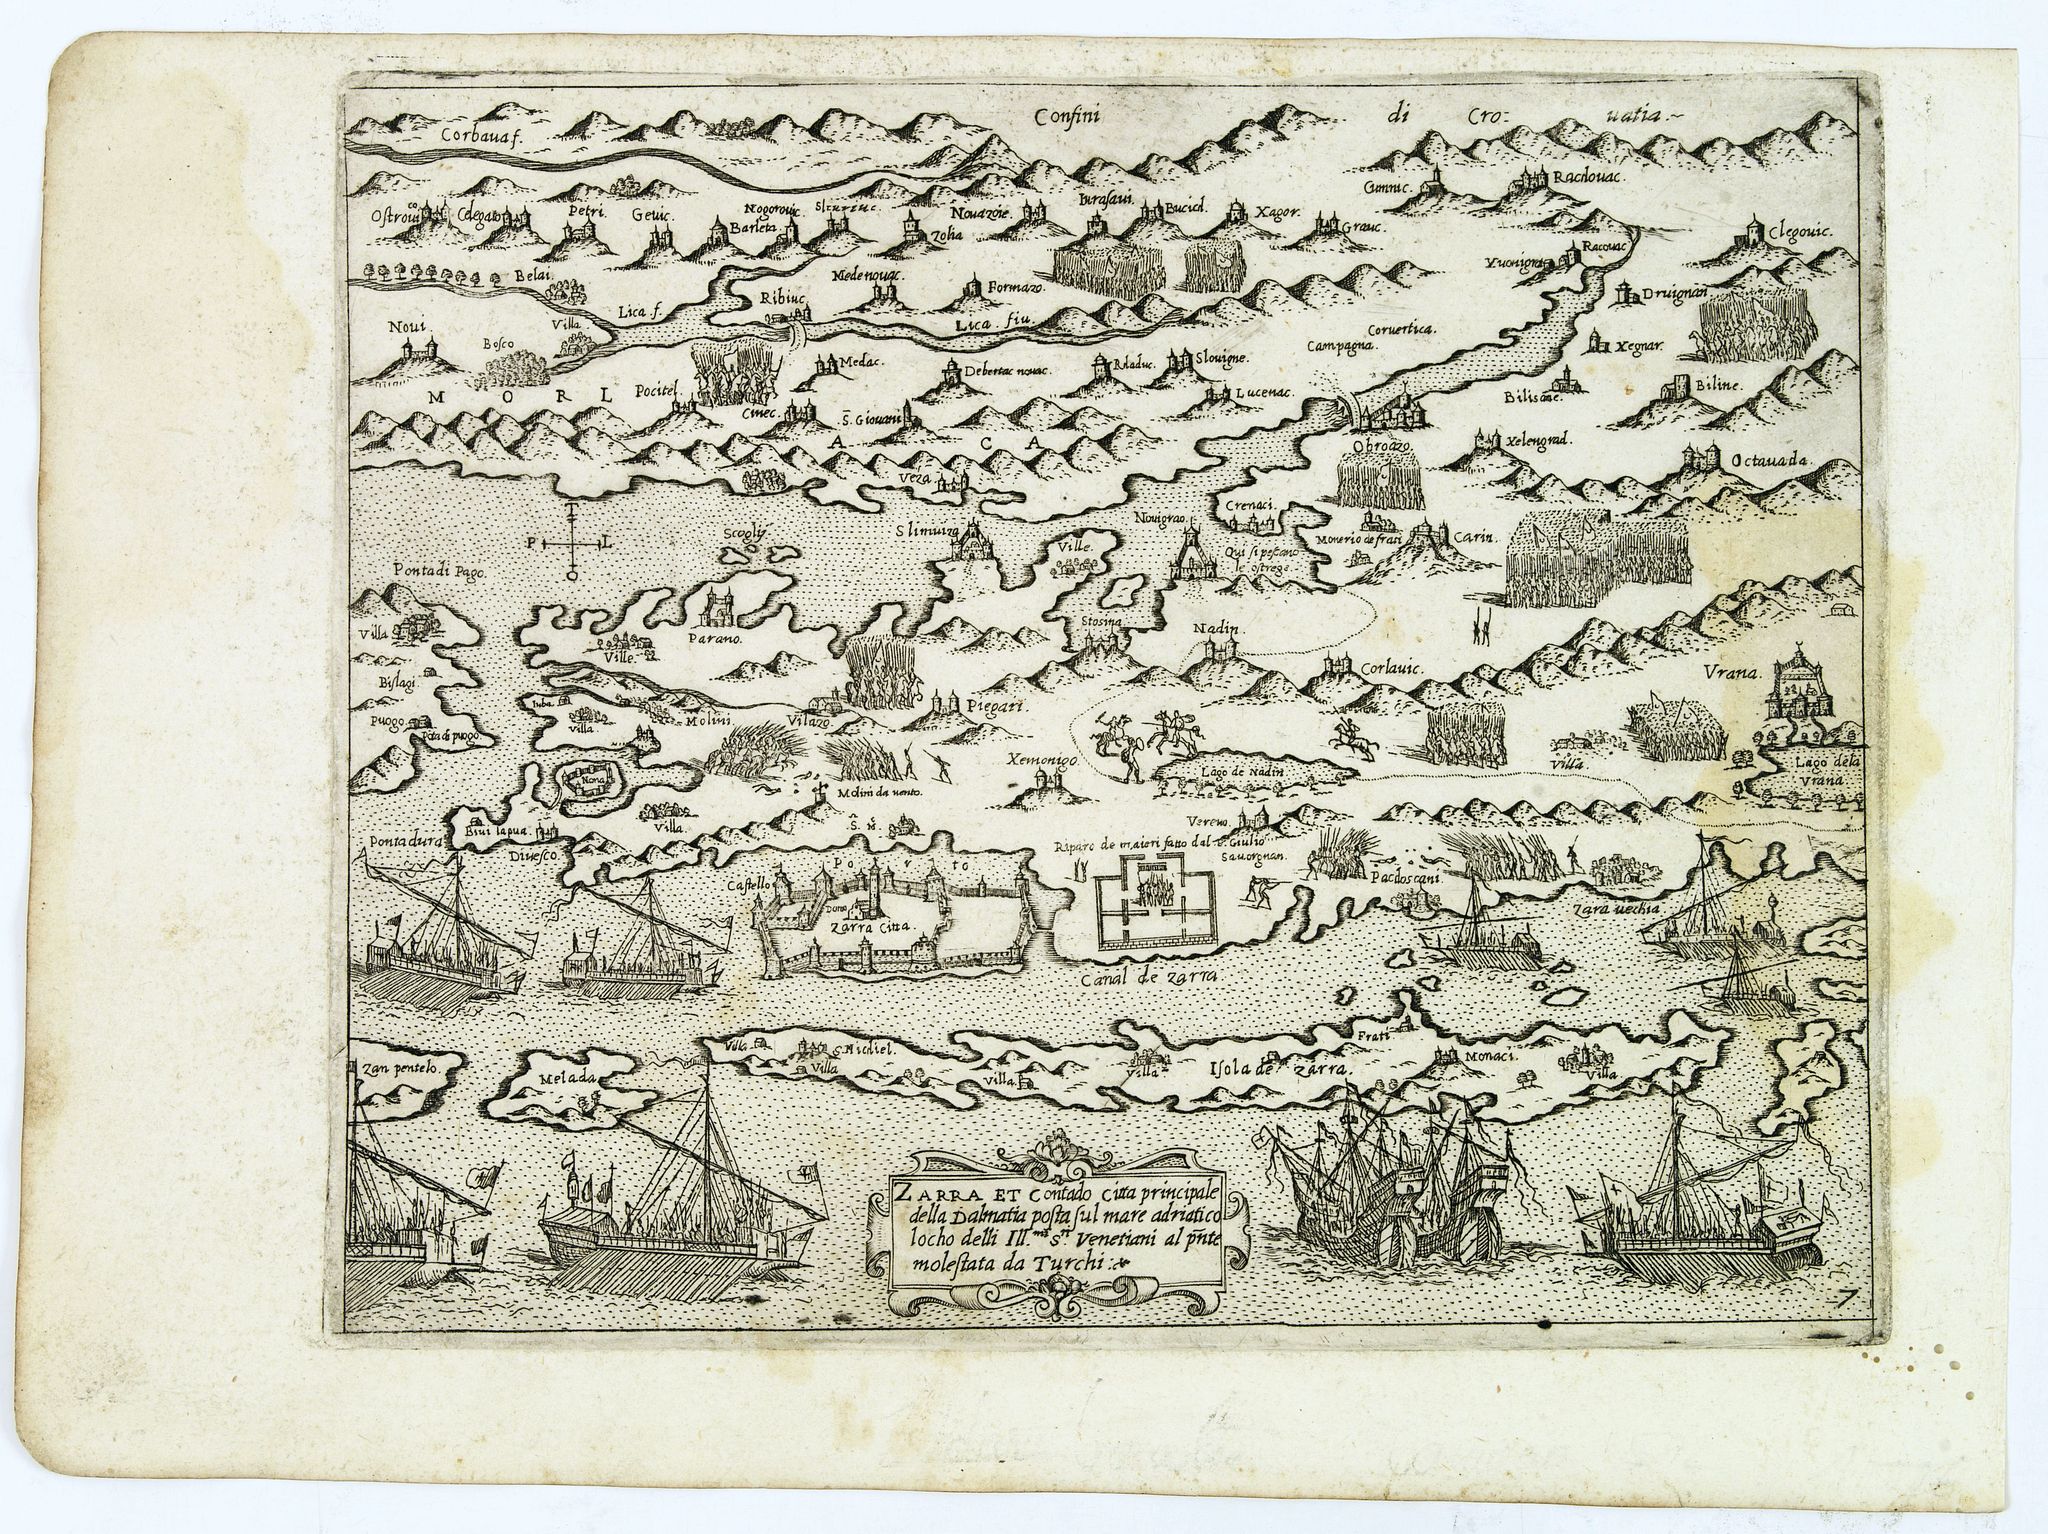 Confini di Cro: uatia
Corbaua f.
Gunnic.
Racnouac.
Ostroui co
Petri.
Geuic.
Nogorouic.
Barleta
Zolia
Nouazoie.
Xagor.
Grauc.
Clegouic.
Racouac
Belai
Lica f.
Ribiuc
Medenouac.
Formazo.
Druignan
Noui
Bosco
Villa
Lica fiu.
Campagna.
Coruertica.
Xegnar.
Medac.
Debertac nouac.
Slouigne.
Lucenac.
Bilisane.
Biline.
MORLACA
Pocitel
Cinec.
S. Giouani
Obroazo.
Xelengrad.
Octauada.
Veza
Scogly
P
L
Slimuiza
Ville.
Nouigrao
Crenaci.
Qui si pescano
le ostrege
Monerio de frati
Carin.
Ponta di Pago.
Villa
Parano.
Ville.
Stosina
Nadin.
Corlauic.
Vrana.
Bislagi
Puogo
Pota di puogo
Villa
Molini
Vilazo.
Piegari
Nona
Molini da uento.
Xemonigo
Lago de Nadin
Villa
Lago dela
Vrana.
Villa.
Pontadura
Diuesco.
Vereuo.
Riparo de maieri fatto dal S. Giulio
Sauorgnan.
Porto
Castello
Domo
Zarra Citta
Pacdoscani
Zara uechia
Canal de Zarra
Zan pentelo.
Melada
Villa
S. Michiel.
Villa
Villa.
Villa.
Isola de Zarra.
Frati
Monaci.
Villa
ZARRA ET Contado Citta principale
della Dalmatia posta sul mare adriatico
locho delli Ill.mi S.ri Venetiani al pnte
molestata da Turchi:
7